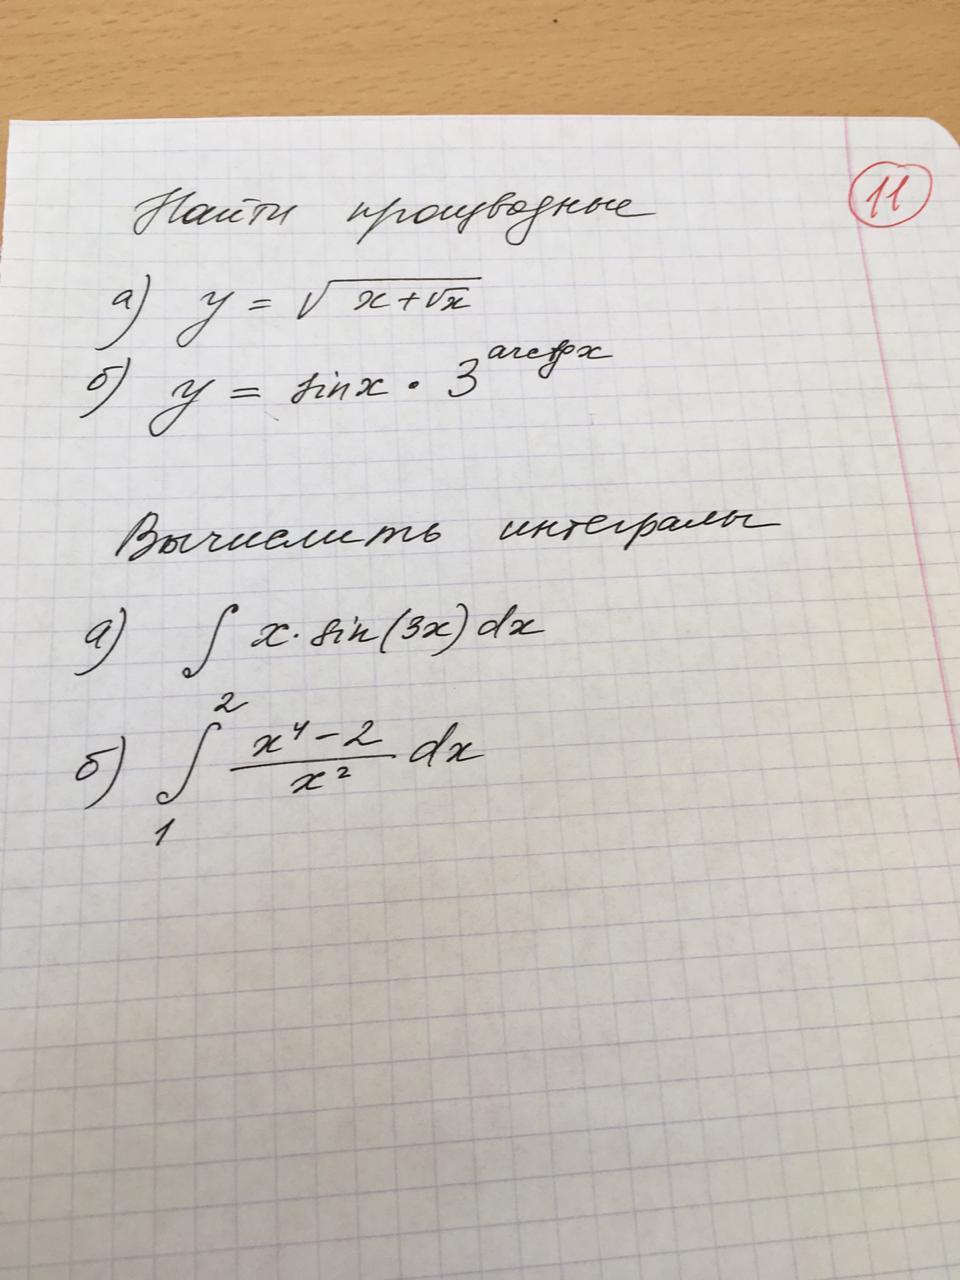 11
Найти производные
а) y = √(x+√x)
б) y = sinx · 3^arctgx
Вычислить интегралы
а) ∫ x·sin(3x)dx
б) ∫₁² (x⁴-2)/x² dx